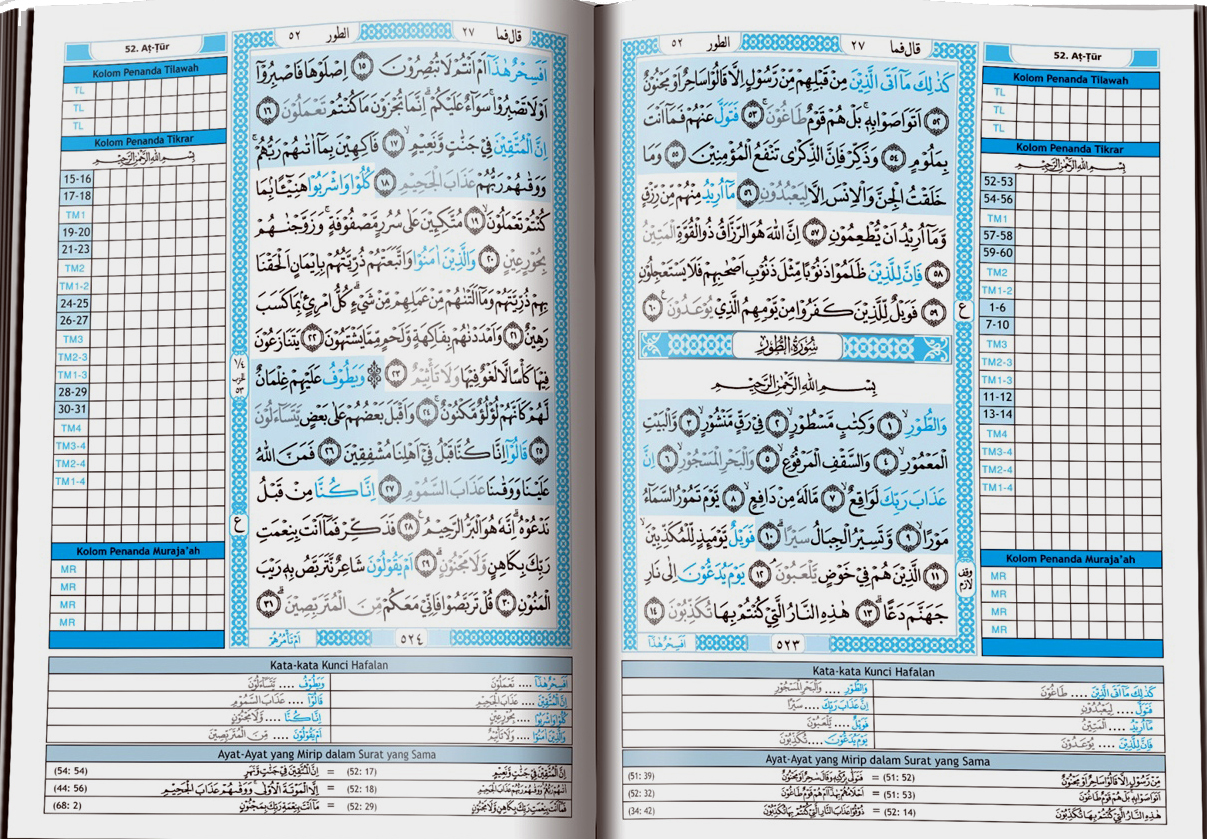 52. Aṭ-Ṭūr
قال فما ٢٧
الطور ٥٢
كَذٰلِكَ مَآ اَتَى الَّذِيْنَ مِنْ قَبْلِهِمْ مِّنْ رَّسُوْلٍ اِلَّا قَالُوْا سَاحِرٌ اَوْ مَجْنُوْنٌ
۝٥٢ اَتَوَاصَوْا بِهٖۚ بَلْ هُمْ قَوْمٌ طَاغُوْنَۚ ۝٥٣ فَتَوَلَّ عَنْهُمْ فَمَآ اَنْتَ
بِمَلُوْمٍ ۝٥٤ وَذَكِّرْ فَاِنَّ الذِّكْرٰى تَنْفَعُ الْمُؤْمِنِيْنَ ۝٥٥ وَمَا
خَلَقْتُ الْجِنَّ وَالْاِنْسَ اِلَّا لِيَعْبُدُوْنِ ۝٥٦ مَآ اُرِيْدُ مِنْهُمْ مِّنْ رِّزْقٍ
وَّمَآ اُرِيْدُ اَنْ يُّطْعِمُوْنِ ۝٥٧ اِنَّ اللّٰهَ هُوَ الرَّزَّاقُ ذُو الْقُوَّةِ الْمَتِيْنُ
۝٥٨ فَاِنَّ لِلَّذِيْنَ ظَلَمُوْا ذَنُوْبًا مِّثْلَ ذَنُوْبِ اَصْحٰبِهِمْ فَلَا يَسْتَعْجِلُوْنِ
۝٥٩ فَوَيْلٌ لِّلَّذِيْنَ كَفَرُوْا مِنْ يَّوْمِهِمُ الَّذِيْ يُوْعَدُوْنَ ۝٦٠
ع
سُوْرَةُ الطُّوْرِ
بِسْمِ اللّٰهِ الرَّحْمٰنِ الرَّحِيْمِ
وَالطُّوْرِۙ ۝١ وَكِتٰبٍ مَّسْطُوْرٍۙ ۝٢ فِيْ رَقٍّ مَّنْشُوْرٍۙ ۝٣ وَّالْبَيْتِ
الْمَعْمُوْرِۙ ۝٤ وَالسَّقْفِ الْمَرْفُوْعِۙ ۝٥ وَالْبَحْرِ الْمَسْجُوْرِۙ ۝٦ اِنَّ
عَذَابَ رَبِّكَ لَوَاقِعٌۙ ۝٧ مَّا لَهٗ مِنْ دَافِعٍۙ ۝٨ يَّوْمَ تَمُوْرُ السَّمَاۤءُ
مَوْرًاۙ ۝٩ وَّتَسِيْرُ الْجِبَالُ سَيْرًاۗ ۝١٠ فَوَيْلٌ يَّوْمَىِٕذٍ لِّلْمُكَذِّبِيْنَۙ
۝١١ الَّذِيْنَ هُمْ فِيْ خَوْضٍ يَّلْعَبُوْنَۘ ۝١٢ يَوْمَ يُدَعُّوْنَ اِلٰى نَارِ
وقف لازم
جَهَنَّمَ دَعًّاۗ ۝١٣ هٰذِهِ النَّارُ الَّتِيْ كُنْتُمْ بِهَا تُكَذِّبُوْنَ ۝١٤
٥٢٣
اَفَسِحْرٌ هٰذَآ
Kolom Penanda Tilawah
TL
TL
TL
Kolom Penanda Tikrar
بِسْمِ اللّٰهِ الرَّحْمٰنِ الرَّحِيْمِ
52-53
54-56
TM1
57-58
59-60
TM2
TM1-2
1-6
7-10
TM3
TM2-3
TM1-3
11-12
13-14
TM4
TM3-4
TM2-4
TM1-4
Kolom Penanda Muraja'ah
MR
MR
MR
MR
Kata-kata Kunci Hafalan
كَذٰلِكَ مَآ اَتَى الَّذِيْنَ .... طَاغُوْنَ
فَتَوَلَّ .... لِيَعْبُدُوْنِ
مَآ اُرِيْدُ .... الْمَتِيْنُ
فَاِنَّ لِلَّذِيْنَ .... يُوْعَدُوْنَ
وَالطُّوْرِ .... وَالْبَحْرِ الْمَسْجُوْرِ
اِنَّ عَذَابَ رَبِّكَ .... سَيْرًا
فَوَيْلٌ .... يَّلْعَبُوْنَ
يَوْمَ يُدَعُّوْنَ .... تُكَذِّبُوْنَ
Ayat-Ayat yang Mirip dalam Surat yang Sama
مِّنْ رَّسُوْلٍ اِلَّا قَالُوْا سَاحِرٌ اَوْ مَجْنُوْنٌ (51: 52) = فَتَوَلّٰى بِرُكْنِهٖ وَقَالَ سٰحِرٌ اَوْ مَجْنُوْنٌ (51: 39)
اَتَوَاصَوْا بِهٖ بَلْ هُمْ قَوْمٌ طَاغُوْنَ (51: 53) = اَحْلَامُهُمْ بِهٰذَآ اَمْ هُمْ قَوْمٌ طَاغُوْنَ (52: 32)
هٰذِهِ النَّارُ الَّتِيْ كُنْتُمْ بِهَا تُكَذِّبُوْنَ (52: 14) = ذُوْقُوْا عَذَابَ النَّارِ الَّتِيْ كُنْتُمْ بِهَا تُكَذِّبُوْنَ (34: 42)
52. Aṭ-Ṭūr
قال فما ٢٧
الطور ٥٢
اَفَسِحْرٌ هٰذَآ اَمْ اَنْتُمْ لَا تُبْصِرُوْنَ ۝١٥ اِصْلَوْهَا فَاصْبِرُوْٓا
اَوْ لَا تَصْبِرُوْاۚ سَوَاۤءٌ عَلَيْكُمْۗ اِنَّمَا تُجْزَوْنَ مَا كُنْتُمْ تَعْمَلُوْنَ ۝١٦
اِنَّ الْمُتَّقِيْنَ فِيْ جَنّٰتٍ وَّنَعِيْمٍۙ ۝١٧ فٰكِهِيْنَ بِمَآ اٰتٰىهُمْ رَبُّهُمْۚ
وَوَقٰىهُمْ رَبُّهُمْ عَذَابَ الْجَحِيْمِ ۝١٨ كُلُوْا وَاشْرَبُوْا هَنِيْۤـًٔا ۢبِمَا
كُنْتُمْ تَعْمَلُوْنَۙ ۝١٩ مُتَّكِـِٕيْنَ عَلٰى سُرُرٍ مَّصْفُوْفَةٍۚ وَزَوَّجْنٰهُمْ
بِحُوْرٍ عِيْنٍ ۝٢٠ وَالَّذِيْنَ اٰمَنُوْا وَاتَّبَعَتْهُمْ ذُرِّيَّتُهُمْ بِاِيْمَانٍ اَلْحَقْنَا
بِهِمْ ذُرِّيَّتَهُمْ وَمَآ اَلَتْنٰهُمْ مِّنْ عَمَلِهِمْ مِّنْ شَيْءٍۗ كُلُّ امْرِئٍ ۢبِمَا كَسَبَ
رَهِيْنٌ ۝٢١ وَاَمْدَدْنٰهُمْ بِفَاكِهَةٍ وَّلَحْمٍ مِّمَّا يَشْتَهُوْنَ ۝٢٢ يَتَنَازَعُوْنَ
١/٤ الحزب ٥٣
فِيْهَا كَأْسًا لَّا لَغْوٌ فِيْهَا وَلَا تَأْثِيْمٌ ۝٢٣ ۞ وَيَطُوْفُ عَلَيْهِمْ غِلْمَانٌ
لَّهُمْ كَاَنَّهُمْ لُؤْلُؤٌ مَّكْنُوْنٌۚ ۝٢٤ وَاَقْبَلَ بَعْضُهُمْ عَلٰى بَعْضٍ يَّتَسَاۤءَلُوْنَ
۝٢٥ قَالُوْٓا اِنَّا كُنَّا قَبْلُ فِيْٓ اَهْلِنَا مُشْفِقِيْنَ ۝٢٦ فَمَنَّ اللّٰهُ
عَلَيْنَا وَوَقٰىنَا عَذَابَ السَّمُوْمِ ۝٢٧ اِنَّا كُنَّا مِنْ قَبْلُ
نَدْعُوْهُۗ اِنَّهٗ هُوَ الْبَرُّ الرَّحِيْمُ ۝٢٨ فَذَكِّرْ فَمَآ اَنْتَ بِنِعْمَتِ
ع
رَبِّكَ بِكَاهِنٍ وَّلَا مَجْنُوْنٍۗ ۝٢٩ اَمْ يَقُوْلُوْنَ شَاعِرٌ نَّتَرَبَّصُ بِهٖ رَيْبَ
الْمَنُوْنِ ۝٣٠ قُلْ تَرَبَّصُوْا فَاِنِّيْ مَعَكُمْ مِّنَ الْمُتَرَبِّصِيْنَۗ ۝٣١
٥٢٤
اَمْ تَأْمُرُهُمْ
Kolom Penanda Tilawah
TL
TL
TL
Kolom Penanda Tikrar
بِسْمِ اللّٰهِ الرَّحْمٰنِ الرَّحِيْمِ
15-16
17-18
TM1
19-20
21-23
TM2
TM1-2
24-25
26-27
TM3
TM2-3
TM1-3
28-29
30-31
TM4
TM3-4
TM2-4
TM1-4
Kolom Penanda Muraja'ah
MR
MR
MR
MR
Kata-kata Kunci Hafalan
اَفَسِحْرٌ هٰذَآ .... تَعْمَلُوْنَ
اِنَّ الْمُتَّقِيْنَ .... عَذَابَ الْجَحِيْمِ
كُلُوْا وَاشْرَبُوْا .... بِحُوْرٍ عِيْنٍ
وَالَّذِيْنَ اٰمَنُوْا .... وَلَا تَأْثِيْمٌ
وَيَطُوْفُ .... يَّتَسَاۤءَلُوْنَ
قَالُوْٓا .... عَذَابَ السَّمُوْمِ
اِنَّا كُنَّا .... وَّلَا مَجْنُوْنٍ
اَمْ يَقُوْلُوْنَ .... مِّنَ الْمُتَرَبِّصِيْنَ
Ayat-Ayat yang Mirip dalam Surat yang Sama
اِنَّ الْمُتَّقِيْنَ فِيْ جَنّٰتٍ وَّنَعِيْمٍ (52: 17) = اِنَّ الْمُتَّقِيْنَ فِيْ جَنّٰتٍ وَّنَهَرٍ (54: 54)
اٰتٰىهُمْ رَبُّهُمْ وَوَقٰىهُمْ رَبُّهُمْ عَذَابَ الْجَحِيْمِ (52: 18) = اِلَّا الْمَوْتَةَ الْاُوْلٰى وَوَقٰىهُمْ عَذَابَ الْجَحِيْمِ (44: 56)
فَمَآ اَنْتَ بِنِعْمَتِ رَبِّكَ بِكَاهِنٍ وَّلَا مَجْنُوْنٍ (52: 29) = مَآ اَنْتَ بِنِعْمَةِ رَبِّكَ بِمَجْنُوْنٍ (68: 2)